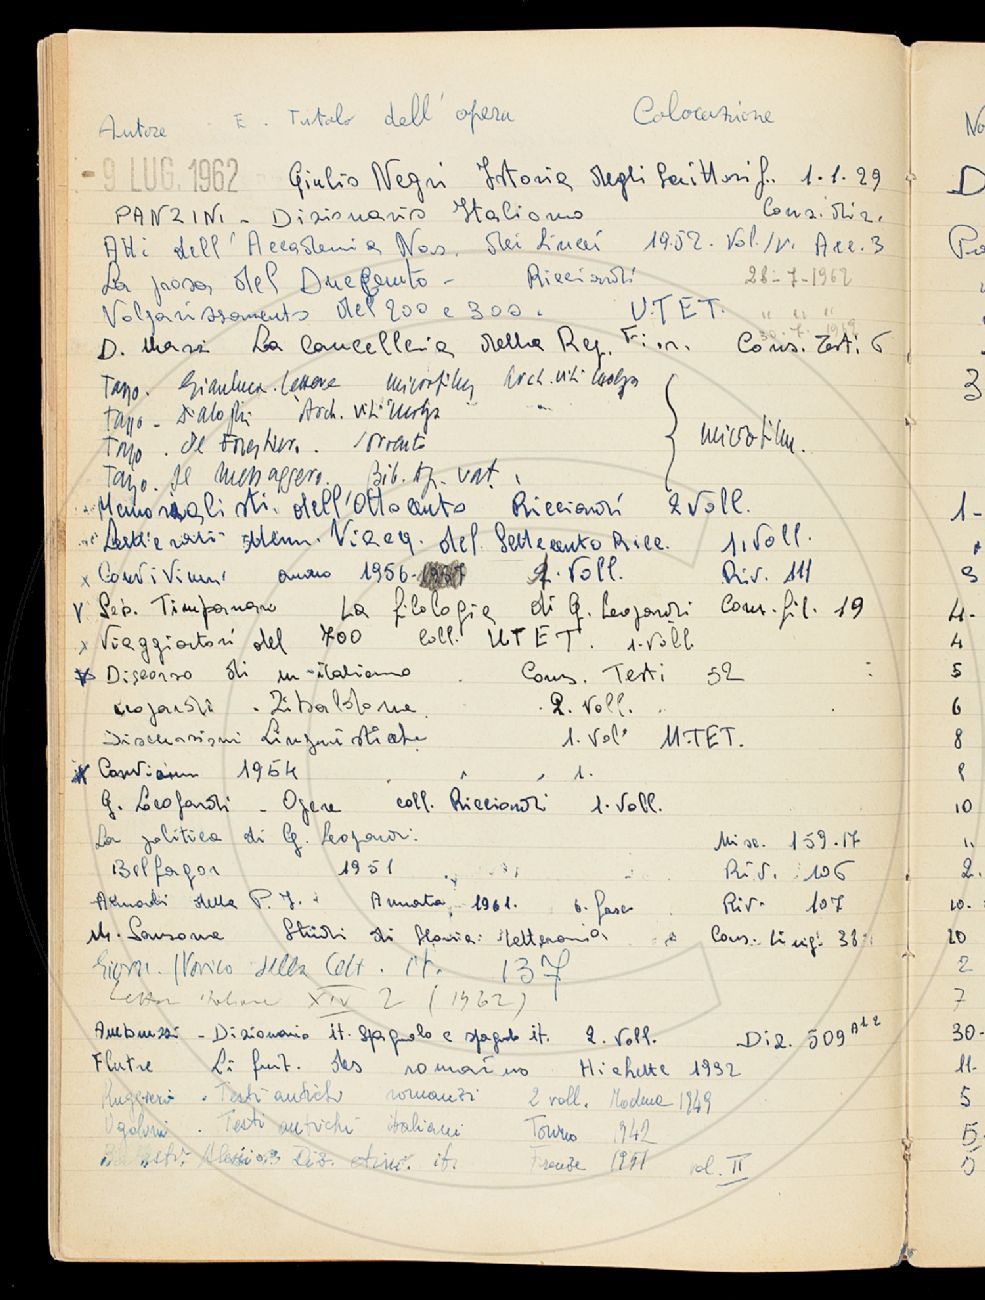 Autore E. Titolo dell'opera Colocazione
- 9 LUG. 1962 Giulio Negri Istoria degli Scrittori f.. 1.1.29
PANZINI - Dizionario Italiano Cons. diz.
Atti dell'Accademia Naz. dei Lincei 1952. Vol. IV. Acc. 3
La prosa del Duecento - Ricciardi 28-7-1962
Volgarizzamento del 200 e 300. U.T.E.T. " " "
30.7.1962
D. Marzi La Cancelleria della Rep. Fior. Cons. Testi. 6
Tasso. Gianluca. Lettere microfilm Arch.
Tasso - Dialoghi Arch.
Tasso. Il Forestiero. Sorrento microfilm.
Tasso. Il Messaggero. Bib. Ap. Vat.
Memorialisti dell'Ottocento Ricciardi 2 Voll.
Viagg. del Settecento Ricc. 1. Voll.
x Convivium anno 1956- 2. Voll. Riv. 111
V Seb. Timpanaro La filologia di G. Leopardi Cons. fil. 19
x Viaggiatori del 700 coll. UTET. 1. Voll
Discorso di italiano Cons. Testi 52
Leopardi - Zibaldone. 2. Voll.
Discussioni Linguistiche 1. Vol° U.TET.
x Convivium 1954 , " , 1.
G. Leopardi - Opere coll. Ricciardi 1. Voll.
La politica di G. Leopardi. Misc. 159.17
Belfagor 1951 Riv. 106
della P. I. Annata 1961. 6. fasc. Riv. 107
M. Sansone Studi di Storia Letteraria Cons. Ling. 38
Giorn. Storico della Lett. it. 137
Lettere italiane XIV 2 (1962)
Ambruzzi - Dizionario it. Spagnolo e spagnolo it. 2. Voll. Diz. 509 A 1-2
Flutre Li fait des romains Hachette 1932
Ruggieri. Testi antichi romanzi 2 voll. Modena 1949
Ugolini. Testi antichi italiani Torino 1942
Alessio Diz. etim. it. Firenze 1951 vol. II
No
D
Pa
3
1-
3
4.
4
5
6
8
9
10
"
2.
10.
20
2
7
30-
11.
5
5.